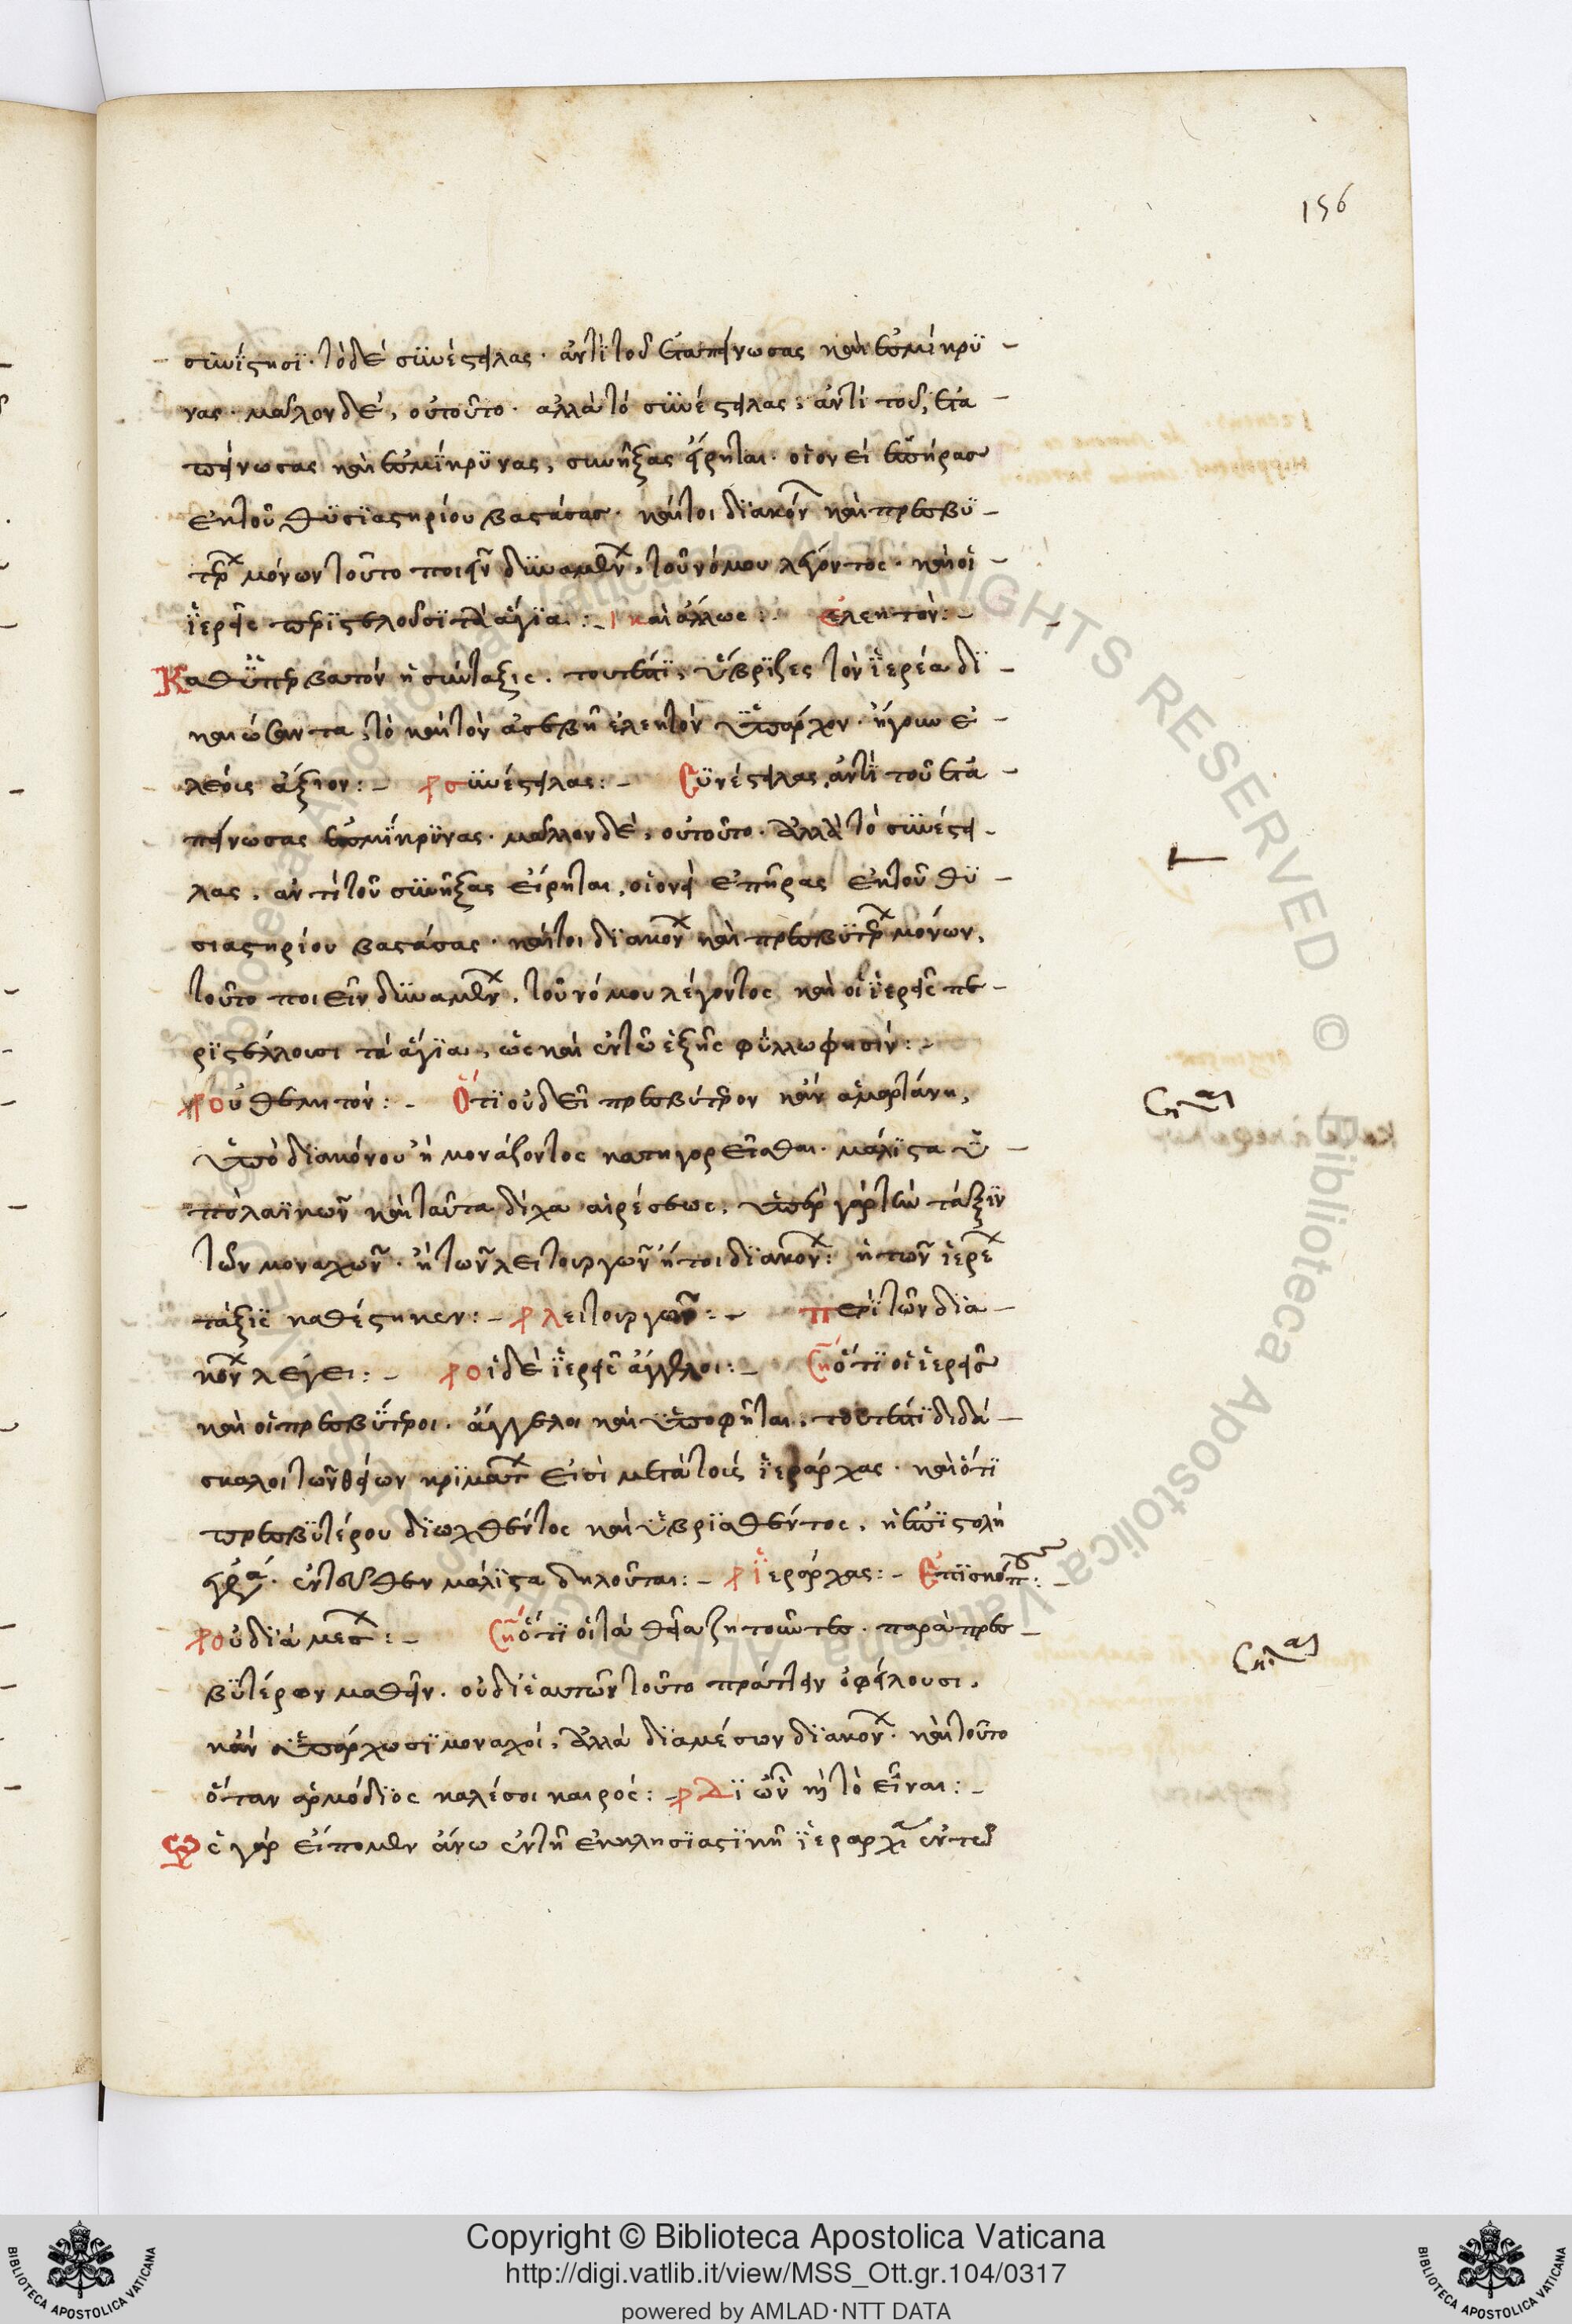 156
συνίστησι· τὸ δὲ συνέστειλας· ἀντὶ τοῦ ἐταπείνωσας καὶ ἐσμίκρυ
νας· μᾶλλον δὲ, οὐ τοῦτο· ἀλλὰ τὸ συνέστειλας, ἀντὶ τοῦ, ἐτα
πείνωσας καὶ ἐσμίκρυνας, συνῆξας εἴρηται· οἷον εἰ ἐπήρας
ἐκ τοῦ θυσιαστηρίου βαστάσας· καίτοι διακόνων καὶ πρεσβυ
τέρων μόνων τοῦτο ποιεῖν δυναμένων, τοῦ νόμου λέγοντος· καὶ οἱ
ἱερεῖς περιστελοῦσι τὰ ἅγια: καὶ ἄλλως: ἐλεητόν:
Καθ ὑπερβατόν ἡ σύνταξις. τουτέστι, ὕβριζες τὸν ἱερέα δι
καιώσαντα, τὸ καὶ τὸν ἀσεβῆ ἐλεητὸν ὑπάρχον. ἤγουν ἐ
λέοις ἄξιον: συνέστειλας: Συνέστειλας, ἀντὶ τοῦ ἐτα
πείνωσας ἐσμίκρυνας. μᾶλλον δὲ, οὐ τοῦτο. ἀλλὰ τὸ συνέστει
λας, ἀντὶ τοῦ συνῆξας εἴρηται, οἱονεὶ ἐπῆρας ἐκ τοῦ θυ
σιαστηρίου βαστάσας· καίτοι διακόνων καὶ πρεσβυτέρων μόνων,
τοῦτο ποιεῖν δυναμένων, τοῦ νόμου λέγοντος καὶ οἱ ἱερεῖς πε
ριστέλλουσι τὰ ἅγια, ὡς καὶ ἐν τῷ ἑξῆς φύλλω φησίν:
οὐ θεμιτόν: Ὅτι οὐ δεῖ πρεσβύτερον κἂν ἁμαρτάνη,
ὑπὸ διακόνου ἢ μονάζοντος κατηγορεῖσθαι· μάλιστα ὑ
πὸ λαϊκῶν καὶ ταῦτα δίχα αἱρέσεως, ὑπὲρ γὰρ τὴν τάξιν
τῶν μοναχῶν· ἢ τῶν λειτουργῶν ἤτοι διακόνων: ἡ τῶν ἱερέων
τάξις καθέστηκεν: λειτουργῶν: Περὶ τῶν δια
κόνων λέγει: οἱ δὲ ἱερεῖς ἄγγελοι: Ση ὅτι οἱ ἱερεῖς
καὶ οἱ πρεσβύτεροι. ἄγγελοι καὶ ὑποφῆται, τουτέστι διδά
σκαλοι τῶν θείων κριμάτων εἰσὶ μετὰ τοὺς ἱεράρχας. καὶ ὅτι
πρεσβυτέρου διωχθέντος καὶ ὑβρισθέντος, ἡ ἐπιστολὴ
ἐντεῦθεν μάλιστα δηλοῦται: ἱεράρχας: Ἐπισκόπους:
οὐ διὰ μέσων: Ση ὅτι οἱ τὰ θεῖα ζητοῦντες. παρὰ πρεσ
βυτέρων μαθεῖν. οὐ δι ἑαυτῶν τοῦτο πράττειν ὀφείλουσι,
κἂν ὑπάρχωσι μοναχοί, ἀλλὰ διὰ μέσων διακόνων. καὶ τοῦτο
ὅταν ἁρμόδιος καλέσοι καιρός: Δι ὧν τὸ εἶναι:
Ὡς γὰρ εἴπομεν ἄνω ἐν τῇ ἐκκλησιαστικῇ ἱεραρχίᾳ ἐν τῷ
Copyright © Biblioteca Apostolica Vaticana
http://digi.vatlib.it/view/MSS_Ott.gr.104/0317
powered by AMLAD·NTT DATA
BIBLIOTECA APOSTOLICA VATICANA
BIBLIOTECA APOSTOLICA VATICANA